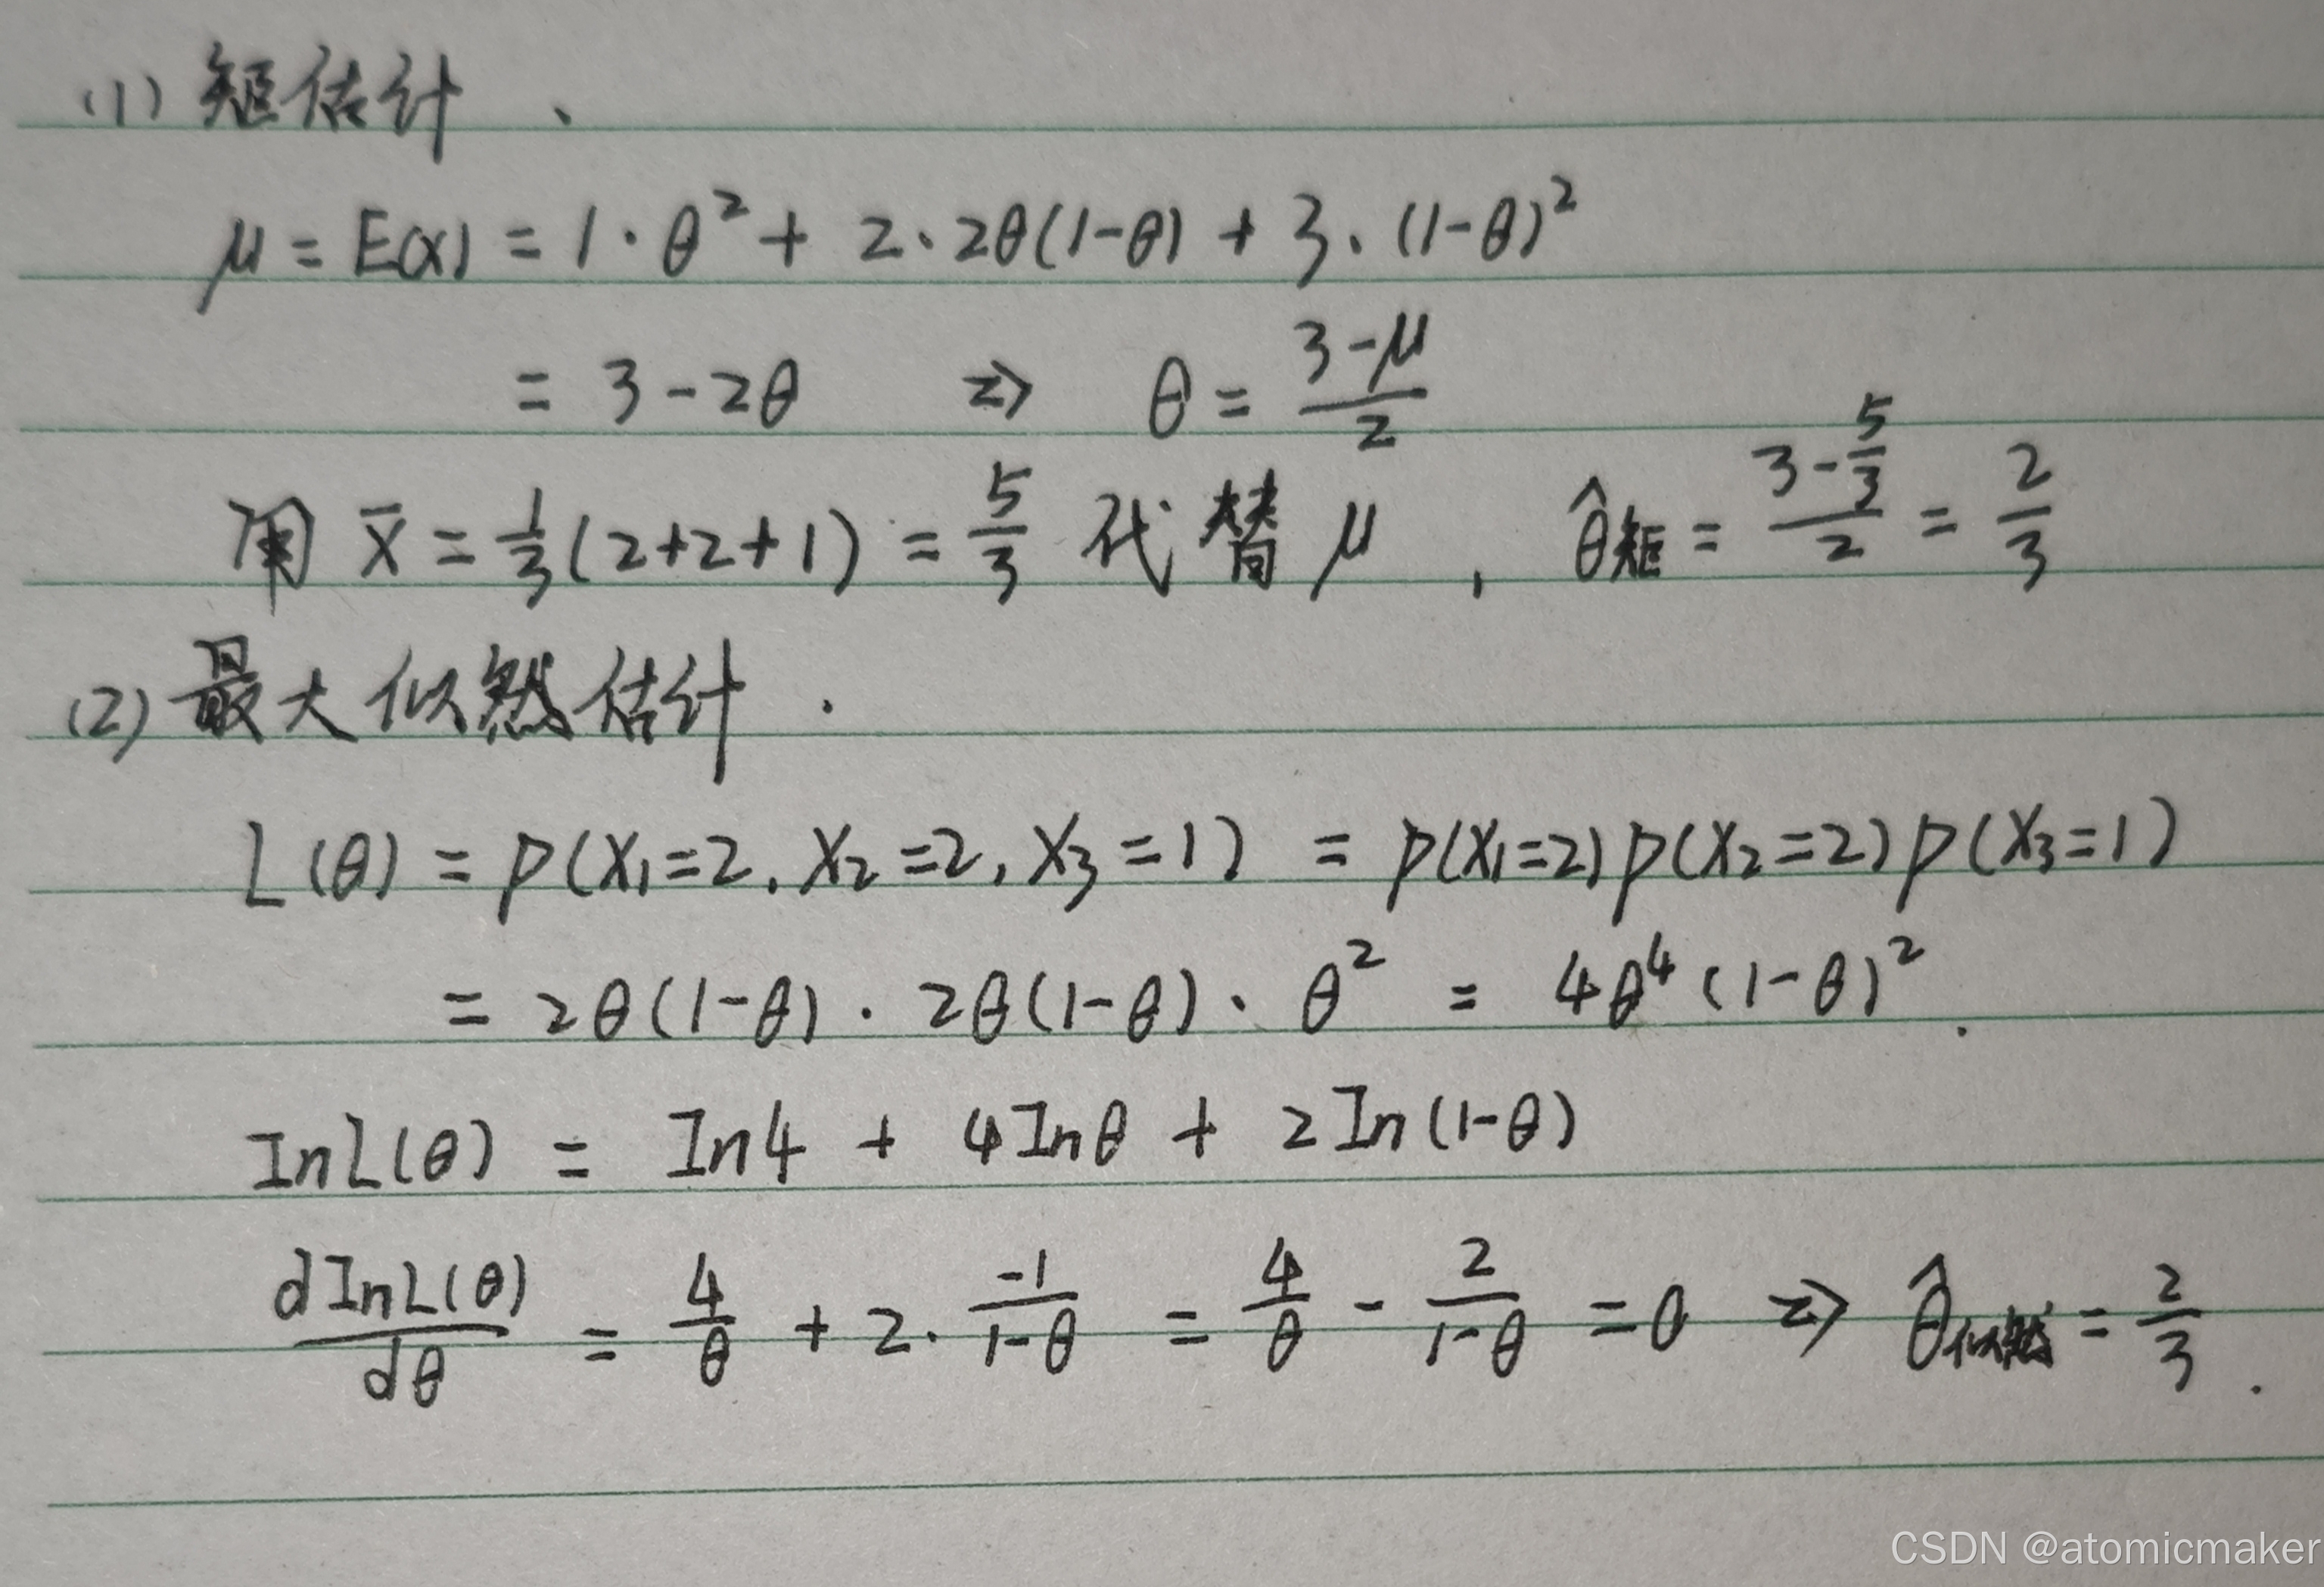 (1) 矩估计、
μ = E(X) = 1·θ² + 2·2θ(1-θ) + 3·(1-θ)²
= 3-2θ ⇒ θ = \frac{3-μ}{2}
用 x̄ = \frac{1}{3}(2+2+1) = \frac{5}{3} 代替 μ , θ̂矩 = \frac{3-\frac{5}{3}}{2} = \frac{2}{3}
(2) 最大似然估计.
L(θ) = P(X₁=2, X₂=2, X₃=1) = P(X₁=2)P(X₂=2)P(X₃=1)
= 2θ(1-θ)·2θ(1-θ)·θ² = 4θ⁴(1-θ)².
InL(θ) = In4 + 4Inθ + 2In(1-θ)
\frac{dInL(θ)}{dθ} = \frac{4}{θ} + 2·\frac{-1}{1-θ} = \frac{4}{θ} - \frac{2}{1-θ} = 0 ⇒ θ̂似然 = \frac{2}{3}.
CSDN @atomicmaker